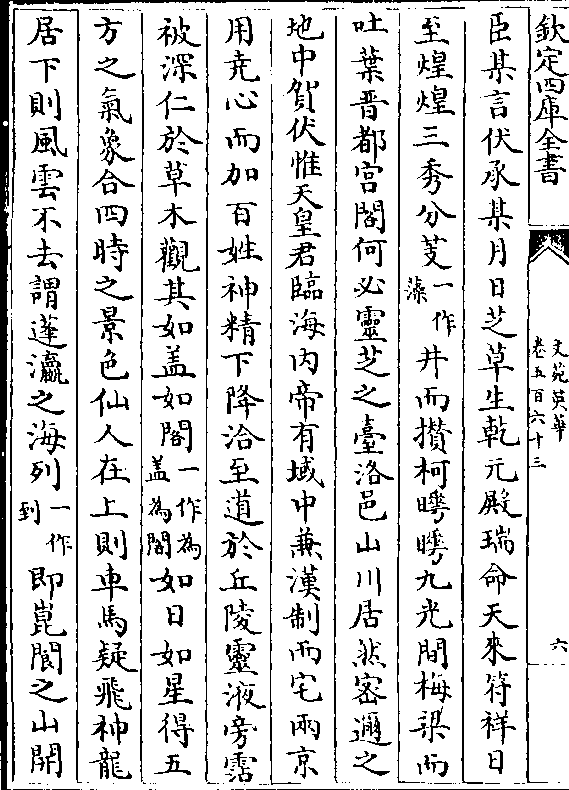 欽定四庫全書
文苑英華
卷五百六十三
六
臣某言伏承某月日芝草生乾元殿瑞命天來符祥日
至煌煌三秀分芰一作藻井而攢柯曄曄九光間梅梁而
吐葉晋都宫閣何必靈芝之臺洛邑山川居然密邇之
地中賀伏惟天皇君臨海内帝有域中兼漢制而宅兩京
用堯心而加百姓神精下降洽至道於丘陵靈液旁霑
被深仁於草木觀其如盖如閣一作為盖為閣如日如星得五
方之氣象合四時之景色仙人在上則車馬疑飛神龍
居下則風雲不去謂蓬瀛之海列一作到即崑閬之山開